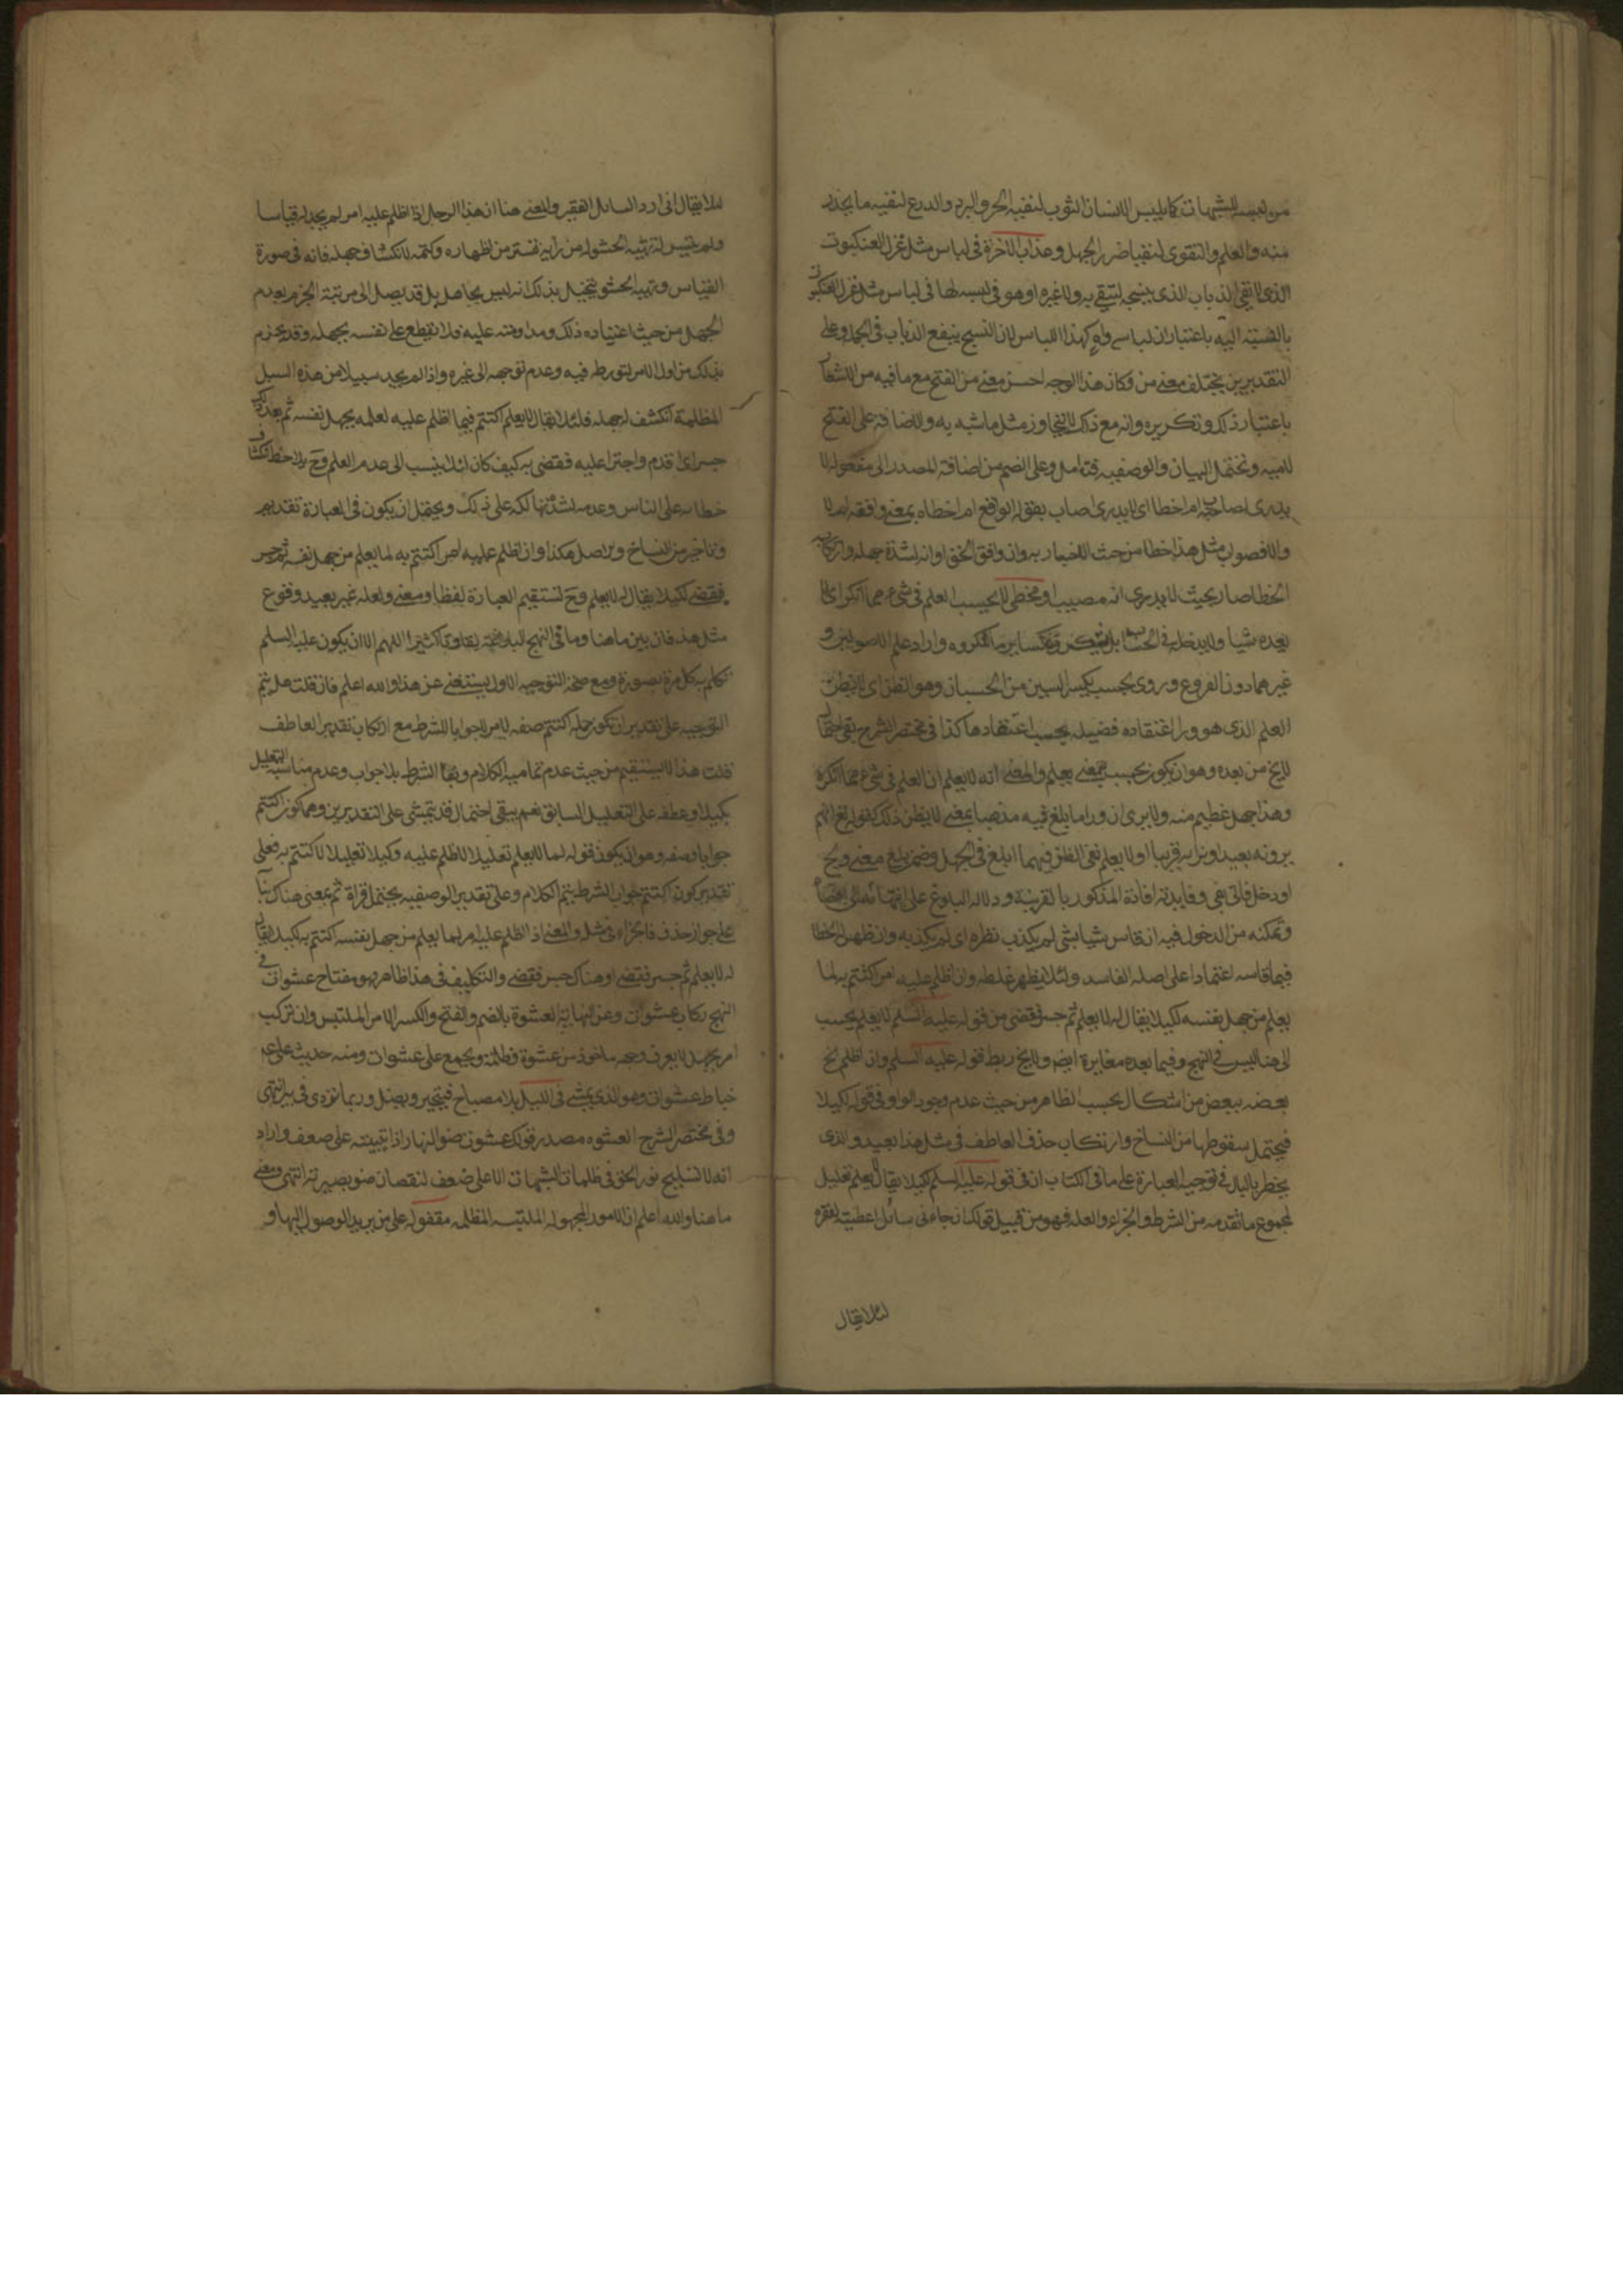 من لبسه الشبهات كما يلبس الانسان الثوب لتقيه الحر والبرد والدرع لتقيه ما يحذر
منه والعلم والتقوى لتقيا ضرر الجهل وعذاب الاخرة في لباس مثل غزل العنكبوت
الذي لا يقي الذباب الذي ينسجه ليتقي به ولا غيره او هو في لبسه لها في لباس مثل غزل العنكبوت
بالنسبة اليه باعتبار ان لباسه واه كهذا اللباس لان النسج ينفع الذباب في الجملة وعلى
التقديرين يختلف معنى من وكان هذا الوجه احسن معنى من الفتح مع ما فيه من
باعتبار ذلك وتكريره وانه مع ذلك لا يتجاوز مثل ما شبه به والاضافة على الفتح
لامية وتحتمل البيان والوصفية فتامل وعلى الضم من اضافة المصدر الى مفعوله لا
يدري اصاب ام اخطا اي لا يدري اصاب الواقع ام اخطاه بمعنى وافقه ام لا
والا فصواب مثل هذا خطا من حيث الاخبار به وان وافق الحق او انه لشدة جهله وارتكابه
الخطا صار بحيث لا يدري انه مصيب او مخطي لا يحسب العلم في شيء مما انكر اي لا
يعده شيا ولا يدخله في الحساب بل ينكره كساير ما انكروه واراد علم الاصولين و
غيرهما دون الفروع وروى يحسب بكسر السين من الحسبان وهو الظن اي لا يظن
العلم الذي هو ورا اعتقاده فضيلة يجب اعتقادها كذا في مختصر الشرح بقي احتمال
لا يخ من بعده وهو ان يكون يحسب بمعنى يعلم والمعنى انه لا يعلم ان العلم في شيء مما انكره
وهذا جهل عظيم منه ولا يرى ان ورا ما بلغ فيه مذهبا بمعنى لا يظن ذلك كقوله تع انهم
يرونه بعيدا ونراه قريبا او لا يعلم نفي الظن فيهما ابلغ في الجهل وضمن بلغ معنى ولج
او دخل فاتى بفي وفايدته افادة المذكور بالقرينة ودلالة البلوغ على انتهائه الى اقصاه
وتمكنه من الدخول فيه ان قاس شيا بشي لم يكذب نظره اي لم يكذبه وان ظهر له الخطا
فيما قاسه اعتمادا على اصله الفاسد ولئلا يظهر غلطه وان اظلم عليه امر اكتتم به لما
يعلم من جهل نفسه لكيلا يقال له لا يعلم ثم جسر فقضى من قوله عليه السلم لا يعلم يحسب
الى هنا ليس في النهج وفيما بعده مغايرة ايضا ولا يخ ربط قوله عليه السلم وان اظلم الخ
بعضه ببعض من اشكال بحسب الظاهر من حيث عدم وجود الواو في قوله لكيلا
فيحتمل سقوطها من النساخ وارتكاب حذف العاطف في مثل هذا بعيد والذي
يخطر بالبال في توجيه العبارة على ما في الكتاب ان في قوله عليه السلم لكيلا يقال لا يعلم تعليل
لمجموع ما تقدمه من الشرط والجزاء والعلة فهو من قبيل قولك ان جاءني سائل اعطيته لفقره
لئلا يقال
لئلا يقال اني ارد السائل الفقير والمعنى هنا ان هذا الرجل اذا اظلم عليه امر لم يجد له قياسا
ولم يتيسر له تهيئة الحشو له من رايه تستر من اظهاره وكتمه لانكشاف جهله فانه في صورة
القياس وتهيئة الحشو يتخيل بذلك انه ليس بجاهل بل قد يصل الى مرتبة الجزم بعدم
الجهل من حيث اعتياده ذلك ومداومته عليه فلا يقطع على نفسه بجهله وقد يجزم
بذلك من اول الامر لتورطه فيه وعدم توجهه الى غيره واذا لم يجد سبيلا من هذه السبل
المظلمة انكشف له جهله فلئلا يقال لا يعلم اكتتم فيما اظلم عليه لعلمه بجهل نفسه ثم بعد ذلك
جسر اي اقدم واجترا عليه فقضى به كيف كان لئلا ينسب الى عدم العلم وح لا يلاحظ انكشاف
خطائه على الناس وعدمه لشدة تهالكه على ذلك ويحتمل ان يكون في العبارة تقديم
وتاخير من النساخ والاصل هكذا وان اظلم عليه امر اكتتم به لما يعلم من جهل نفسه ثم جسر
فقضى لكيلا يقال له لا يعلم وح تستقيم العبارة لفظا ومعنى ولعله غير بعيد ووقوع
مثل هذا فان بين ما هنا وما في النهج البلاغة تفاوتا كثيرا اللهم الا ان يكون عليه السلم
تكلم به كل مرة بصورة ومع صحة التوجيه الاول يستغنى عن هذا والله اعلم فان قلت هل يتم
التوجيه على تقدير ان تكون جملة اكتتم صفة لامر لا جوابا للشرط مع ارتكاب تقدير العاطف
قلت هذا لا يستقيم من حيث عدم تمامية الكلام وبقا الشرط بلا جواب وعدم مناسبة التعليل
بكيلا وعطفه على التعليل السابق نعم يبقى احتمال قد يتمشى على التقديرين وهما كون اكتتم
جوابا وصفة وهو ان يكون قوله لما لا يعلم تعليلا لاظلم عليه وكيلا تعليلا لاكتتم به فعلى
تقدير كون اكتتم جواب الشرط يتم الكلام وعلى تقدير الوصفية يحتمل قراة ثم بمعنى هناك بنا
على جواز حذف فا الجزاء في مثله والمعنى اذا اظلم عليه امر لما يعلم من جهل نفسه اكتتم به لكيلا يقال
له لا يعلم ثم جسر فقضى او هناك جسر فقضى والتكليف في هذا ظاهر فهو مفتاح عشوات في
النهج ركاب عشوات وعن النهاية العشوة بالضم والفتح والكسر الامر الملتبس وان تركب
امر بجهل لا يعرف وجهه ماخوذ من عشوة ظلمة ويجمع على عشوات ومنه حديث علي ع
خباط عشوات وهو الذي يمشي في الليل بلا مصباح فيتحير ويضل وربما تردى في بئر انتهى
وفي مختصر الشرح العشوه مصدر قولك عشوت ضو النهار اذا تبينته على ضعف واراد
انه لا يستليح نور الحق في ظلمات الشبهات الا على ضعف لنقصان ضو بصيرته انتهى ومعنى
ما هنا والله اعلم ان الامور المجهولة الملتبسة المظلمة مقفولة على من يريد الوصول اليها و